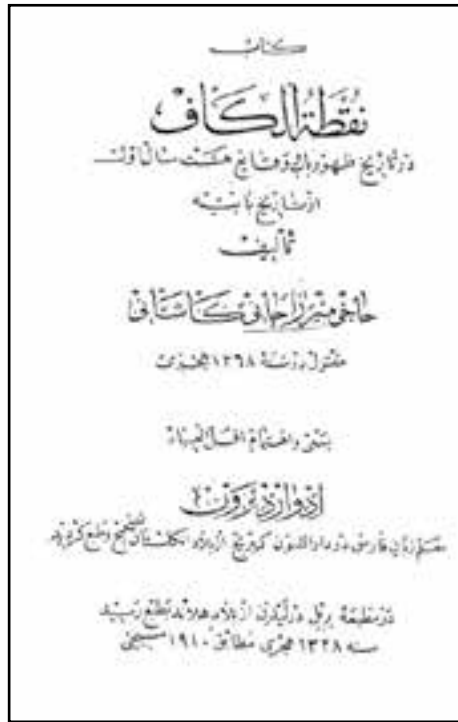 كتاب
نقطة الكاف
در تاريخ ظهور باب و وقايع هشت سال اول
از تاريخ بابيه
تأليف
حاجى ميرزا جانى كاشانى
مقتول در سنهٔ ١٢٦٨ هجرى
بسعى و اهتمام اقل العباد
ادوارد برون
معلم زبان فارسى در دار الفنون كمبريج از بلاد انگلستان تصحيح و طبع گرديد
در مطبعهٔ بريل در ليدن از بلاد هلاند بطبع رسيد
سنه ١٣٢٨ هجرى مطابق ١٩١٠ مسيحى